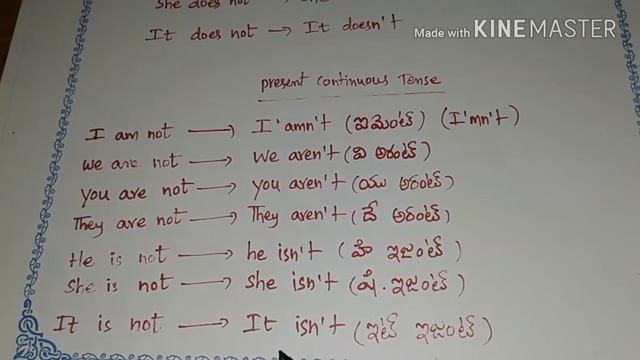 She does not →
It does not → It doesn't
Made with KINEMASTER
present continuous Tense
I am not → I'amn't (ఐమెంట్) (I'mn't)
we are not → We aren't (వి అరంట్)
you are not → you aren't (యు అరంట్)
They are not → They aren't (దే అరంట్)
He is not → he isn't (హి ఇజంట్)
She is not → she isn't (షి. ఇజంట్)
It is not → It isn't (ఇట్ ఇజంట్)